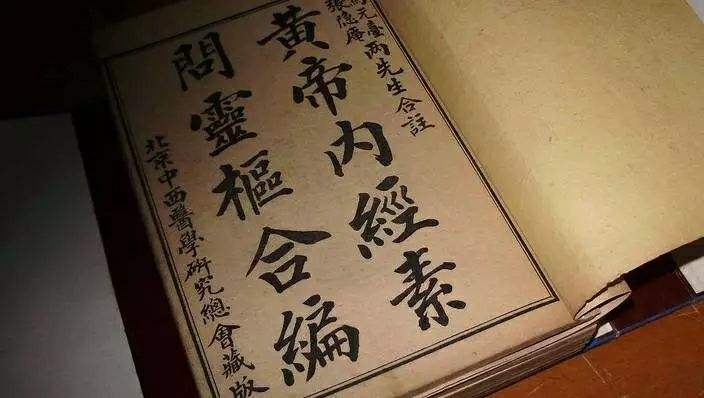 馬元臺兩先生合註
張隱庵
黃帝內經素
問靈樞合編
北京中西醫學研究總會藏版